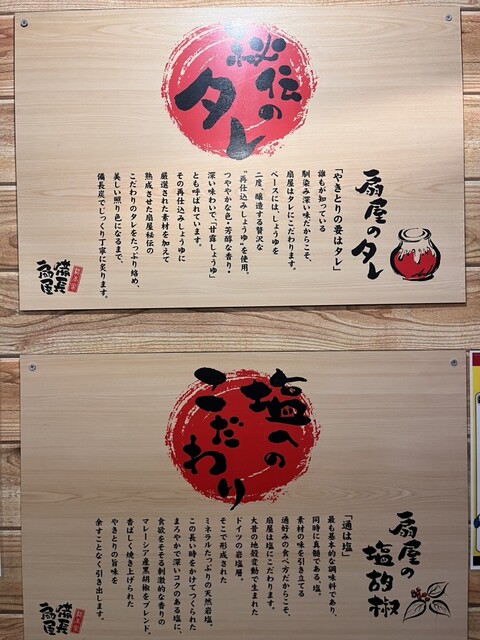 秘伝の
タレ
扇屋のタレ
「やきとりの要はタレ」
誰もが知っている
馴染み深い味だからこそ、
扇屋はタレにこだわります。
ベースには、しょうゆを
二度、醸造する贅沢な
"再仕込みしょうゆ"を使用。
つややかな色・芳醇な香り・
深い味わいで、「甘露しょうゆ」
とも呼ばれています。
その再仕込みしょうゆに
厳選された素材を加えて
熟成させた扇屋秘伝の
こだわりのタレをたっぷり絡め、
美しい照り色になるまで、
備長炭でじっくり丁寧に炙ります。
備長
扇屋
塩への
こだわり
扇屋の
塩胡椒
「通は塩」
最も基本的な調味料であり、
同時に真髄である、塩。
素材の味を引き立てる
通好みの食べ方だからこそ、
扇屋は塩にこだわります。
大昔の地殻変動で生まれた
ドイツの岩塩層。
そこで形成された
ミネラルたっぷりの天然岩塩。
この長い時をかけてつくられた
まろやかで深いコクのある塩に、
食欲をそそる刺激的な香りの
マレーシア産黒胡椒をブレンド。
香ばしく焼き上げられた
やきとりの旨味を
余すことなく引き出します。
備長
扇屋